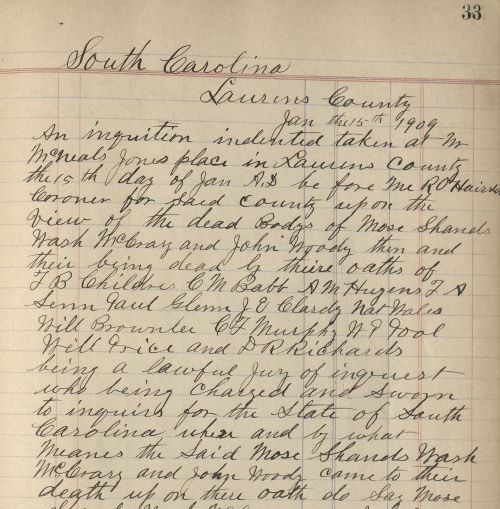 33
South Carolina
Laurens County
Jan the 15th 1909
An inquition indented taken at Mr
McNeals Jones place in Laurens County
the 15th day of Jan A.D be fore me R O Hairston
Coroner for said county upon the
view of the dead Bodys of Mose Shands
Wash McCrary and John Moody then and
their being dead by theire oaths of
F B Childres C M Babb A M Hugens F A
Senn Paul Glenn J E Clardy Nat Wales
Will Brownlee C F Murphy W P
Will Price and D R Richards
being a lawful Jury of inquest
who being Charged and Sworn
to inquire for the State of South
Carolina when and by what
Means the Said Mose Shands Wash
McCrary and John Moody came to their
death up on there oath do Say Mose